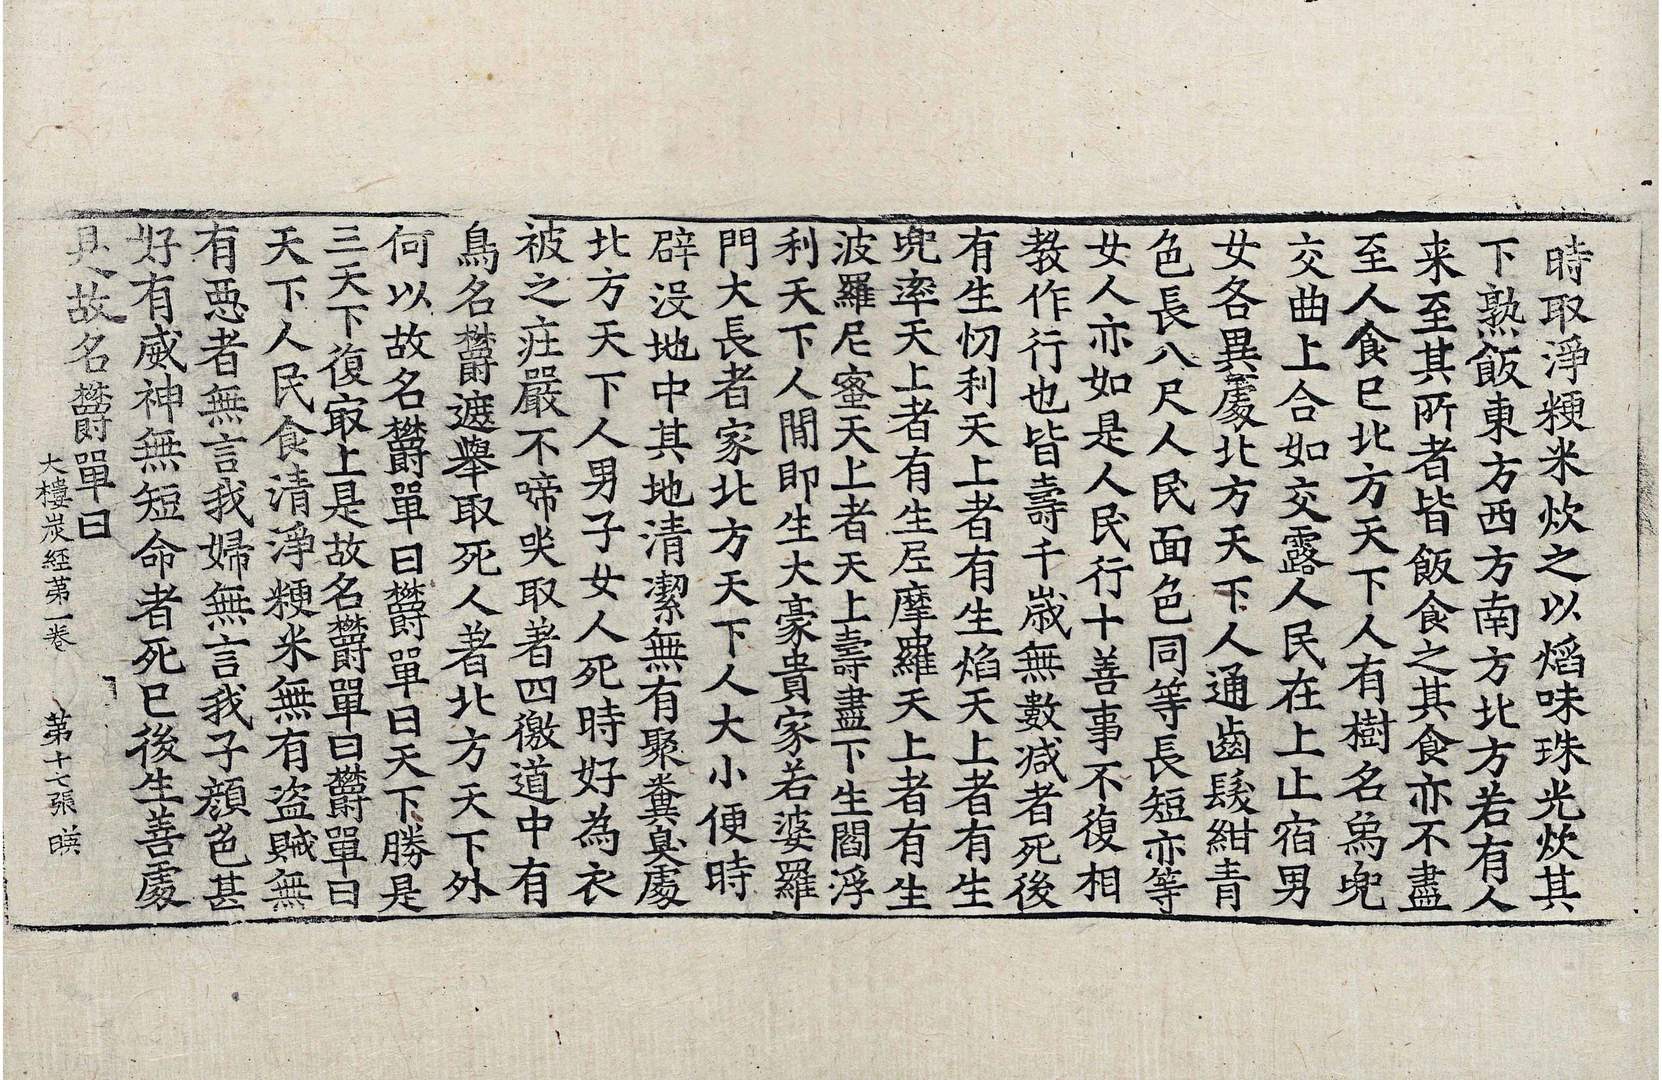 時取淨粳米炊之以熖味珠光炊其
下熟飯東方西方南方北方若有人
来至其所者皆飯食之其食亦不盡
至人食已北方天下人有樹名爲兜
交曲上合如交露人民在上止宿男
女各異處北方天下人通齒髮紺青
色長八尺人民面色同等長短亦等
女人亦如是人民行十善事不復相
教作行也皆壽千歲無數减者死後
有生忉利天上者有生焰天上者有生
兜率天上者有生尼摩羅天上者有生
波羅尼蜜天上者天上壽盡下生閻浮
利天下人間即生大豪貴家若婆羅
門大長者家北方天下人大小便時
辟沒地中其地清潔無有聚糞臭處
北方天下人男子女人死時好為衣
被之莊嚴不啼哭取著四徼道中有
鳥名欝遮舉取死人著北方天下外
何以故名欝單曰欝單曰天下勝是
三天下復冣上是故名欝單曰欝單曰
天下人民食清淨粳米無有盜賊無
有惡者無言我婦無言我子顔色甚
好有威神無短命者死已後生善處
是故名欝單曰
大樓炭経第一卷 第十七張 暎